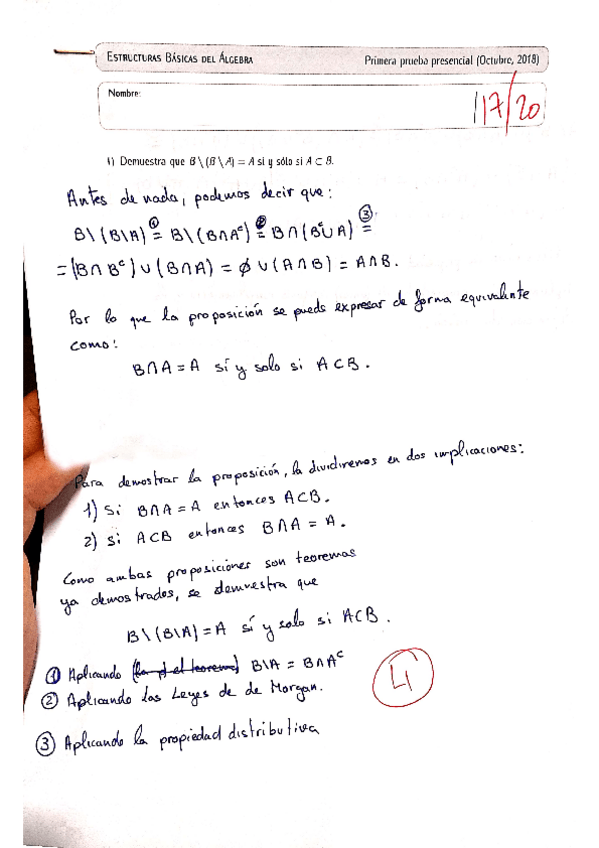 ESTRUCTURAS BÁSICAS DEL ÁLGEBRA Primera prueba presencial (Octubre, 2018)
Nombre:
17/20
1) Demuestra que B \ (B \ A) = A si y sólo si A ⊂ B.
Antes de nada, podemos decir que:
B\(B\A) ①= B\(B∩Aᶜ) ②= B∩(Bᶜ∪A) ③=
= (B∩Bᶜ)∪(B∩A) = ∅∪(A∩B) = A∩B.
Por lo que la proposición se puede expresar de forma equivalente
como:
B∩A = A sí y solo si A⊂B.
Para demostrar la proposición, la dividiremos en dos implicaciones:
1) Si B∩A = A entonces A⊂B.
2) Si A⊂B entonces B∩A = A.
Como ambas proposiciones son teoremas
ya demostrados, se demuestra que
B\(B\A) = A sí y solo si A⊂B.
① Aplicando B\A = B∩Aᶜ
② Aplicando las Leyes de de Morgan.
③ Aplicando la propiedad distributiva
4